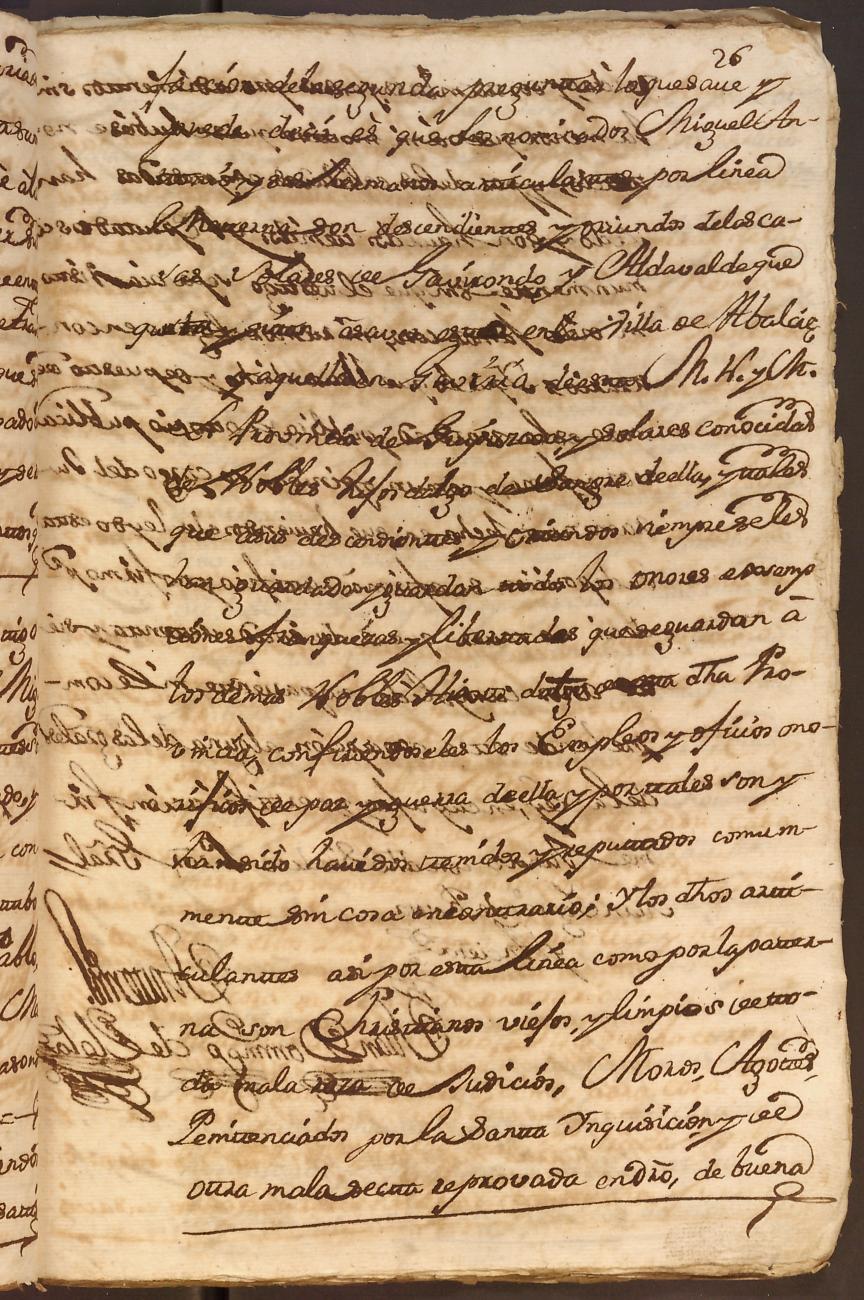 26
de la segunda pregunta lo que save y
puede decir es que los nominados Miguel An-
tonio y sus hermanos articulantes por linea
Materna son descendientes y oriundos de las ca-
sas solares de Gavirondo y Aldavaldeque
estas en la Villa de Abalciȩ
aquella en de esta M. N. y M.
L. Provincia de Guipuzcoa, y solares conocidas
de Nobles hijos dalgo de sangre de ella, y tales
que a sus descendientes y oriundos siempre se les
han guardado y guardan todos los onores exsemp
ciones franquezas y libertades que se guardan â
los demas Nobles hijos dalgo de esta dha Pro-
vincia, confiriendoseles los Empleos y ofizios ono-
rificos de paz y guerra de ella y por tales son y
han sido havidos tenidos y reputados comum-
mente sin cosa en contrario; y los dhos arti-
culantes asi por esta linea como por la pater-
na son Christianos viejos, y limpios de to-
da mala raza de Judicios, Moros, Agotes,
Penitenciados por la Santa Ynquisicion y de
otra mala secta reprovada en dro, de buena